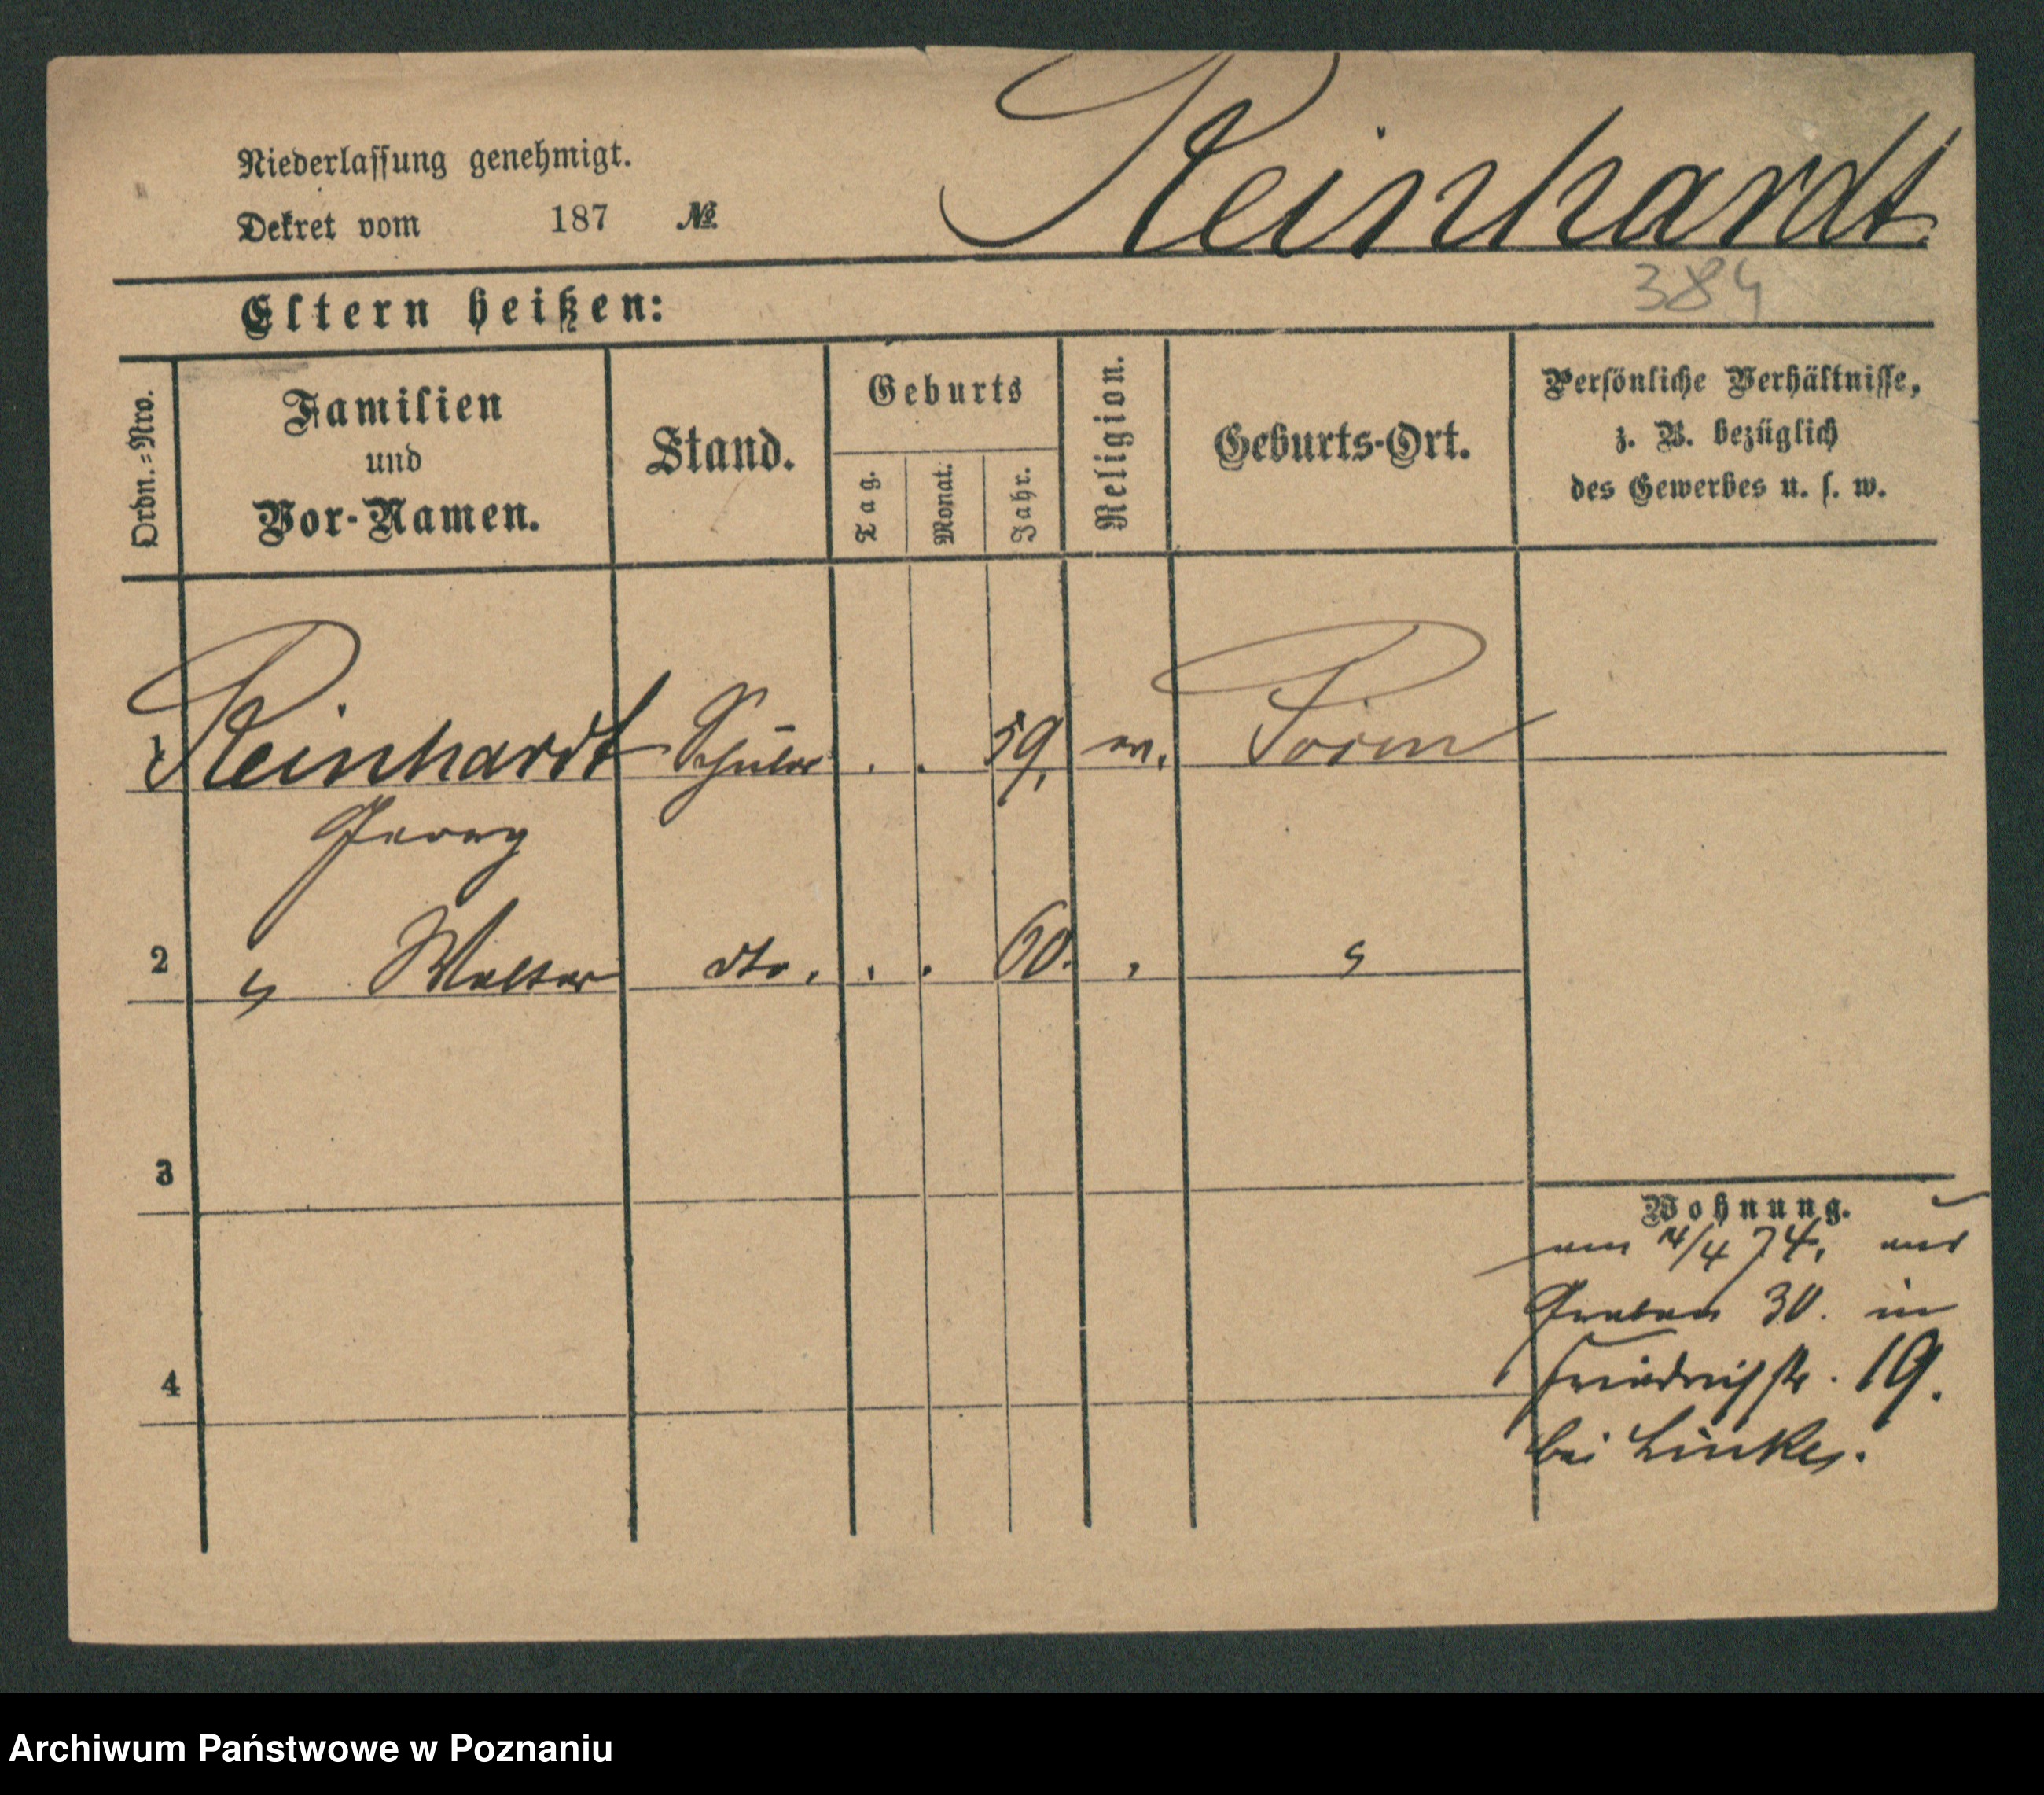 Reinhardt
Niederlassung genehmigt.
Dekret vom 187 №
384
Eltern heißen:
Ordn.=Nro.
Familien
und
Vor-Namen.
Stand.
Geburts
Tag.
Monat.
Jahr.
Religion.
Geburts-Ort.
Persönliche Verhältnisse,
z. B. bezüglich
des Gewerbes u. s. w.
1 Reinhardt Schüler . . 59. ev.
Georg
2 " Walter dto. . . 60. "
3
4
Wohnung.
am 4/4 74. aus
Graben 30. in
Friedrichstr. 19.
bei Linke.
Archiwum Państwowe w Poznaniu